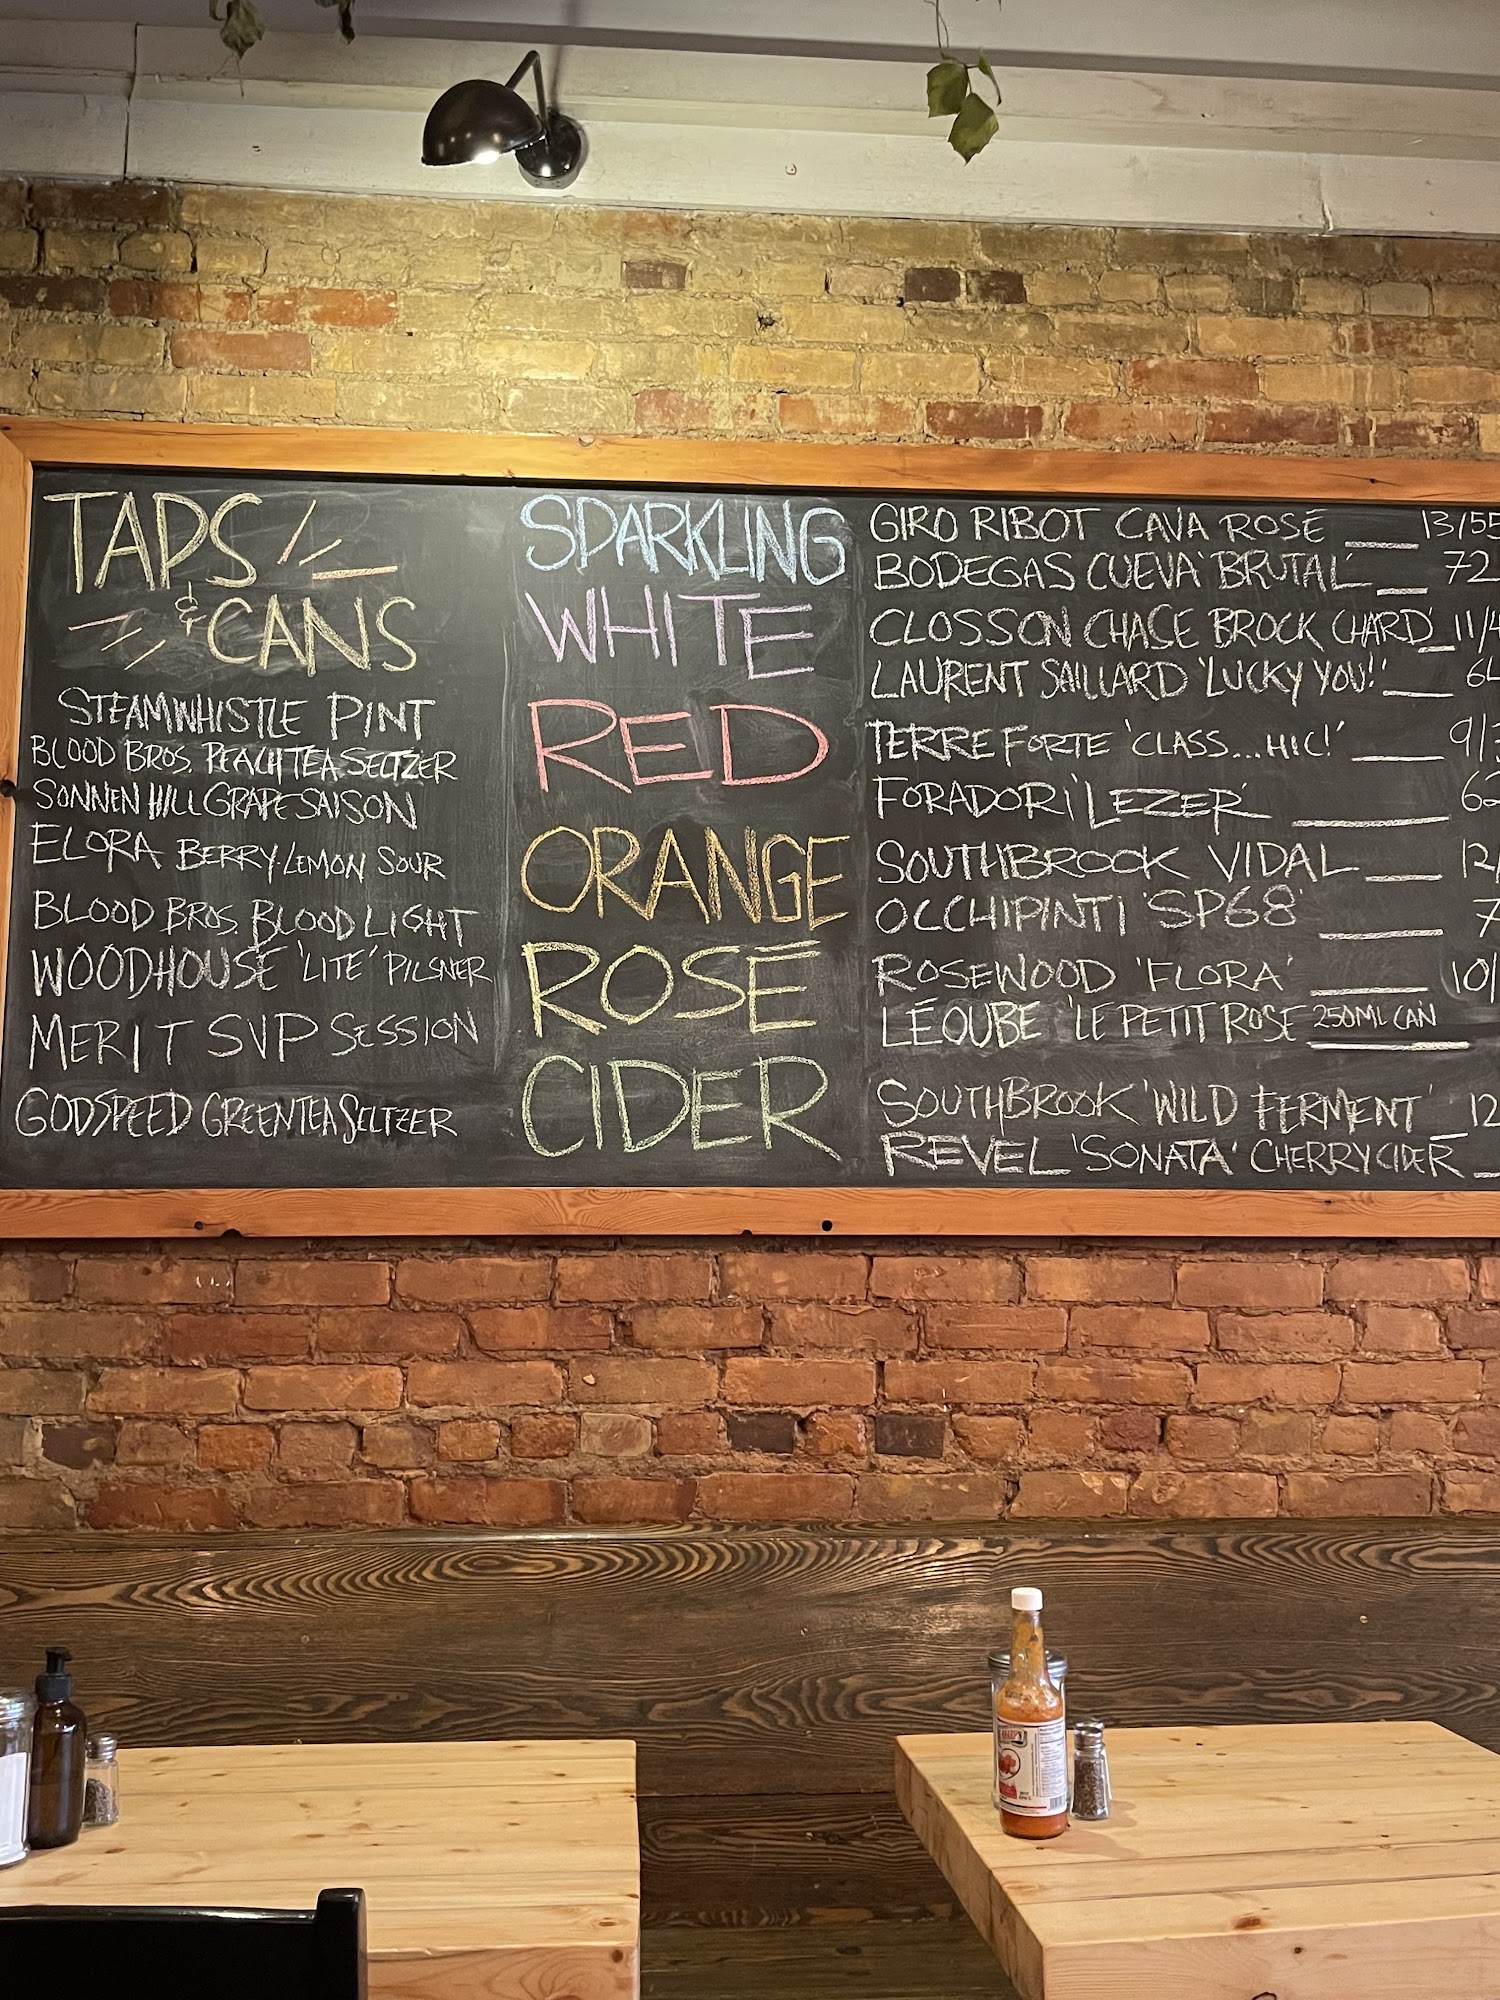 TAPS
& CANS
STEAMWHISTLE PINT
BLOOD BROS. PEACH TEA SELTZER
SONNEN HILL GRAPE SAISON
ELORA BERRY-LEMON SOUR
BLOOD BROS. BLOOD LIGHT
WOODHOUSE 'LITE' PILSNER
MERIT SVP SESSION
GODSPEED GREEN TEA SELTZER
SPARKLING
WHITE
RED
ORANGE
ROSÉ
CIDER
GIRO RIBOT CAVA ROSÉ 13/55
BODEGAS CUEVA 'BRUTAL' 72
CLOSSON CHASE BROCK CHARD 11/4
LAURENT SAILLARD 'LUCKY YOU!' 64
TERRE FORTE 'CLASS...HIC!' 9/
FORADORI 'LEZER' 62
SOUTHBROOK VIDAL 12/
OCCHIPINTI 'SP68' 7
ROSEWOOD 'FLORA' 10/
LÉOUBE 'LE PETIT ROSÉ 250ML CAN
SOUTHBROOK 'WILD FERMENT' 12
REVEL 'SONATA' CHERRY CIDER